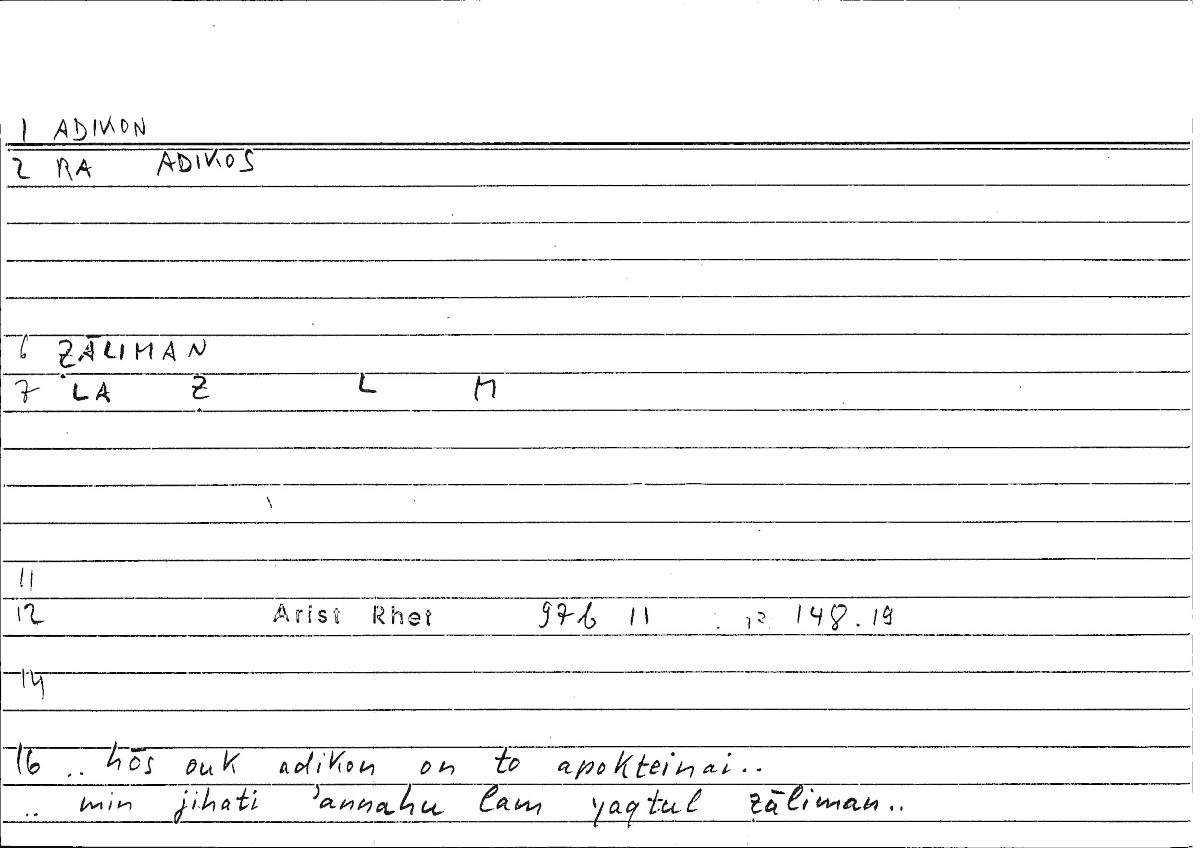 1 ADIKON
2 RA ADIKOS
6 ẒĀLIMAN
7 LA Ẓ L M
11
12 Arist Rhet 97b 11 12 148.19
14
16 .. hōs ouk adikon on to apokteinai..
.. min jihati 'annahu lam yaqtul ẓāliman..